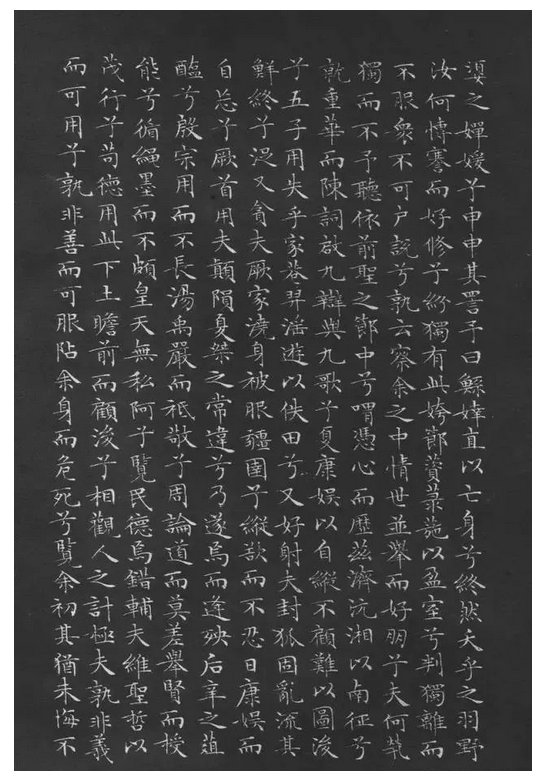 嬃之嬋媛兮申申其詈予曰鯀婞直以亡身兮終然夭乎之羽野
汝何博謇而好修兮紛獨有此姱節薋菉葹以盈室兮判獨離而
不服眾不可戶說兮孰云察余之中情世並舉而好朋兮夫何煢
獨而不予聽依前聖之節中兮喟憑心而歷茲濟沅湘以南征兮
就重華而陳詞啟九辯與九歌兮夏康娛以自縱不顧難以圖後
兮五子用失乎家巷羿淫遊以佚田兮又好射夫封狐固亂流其
鮮終兮浞又貪夫厥家澆身被服彊圉兮縱欲而不忍日康娛而
自忘兮厥首用夫顛隕夏桀之常違兮乃遂焉而逢殃后辛之菹
醢兮殷宗用而不長湯禹嚴而祗敬兮周論道而莫差舉賢而授
能兮循繩墨而不頗皇天無私阿兮覽民德焉錯輔夫維聖哲以
茂行兮苟德用此下土瞻前而顧後兮相觀人之計極夫孰非義
而可用兮孰非善而可服阽余身而危死兮覽余初其猶未悔不